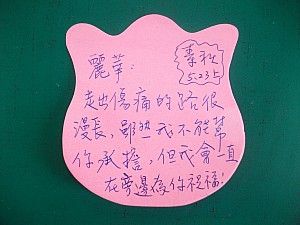 麗華:
素秋
5.23上
走出傷痛的路很
漫長,雖然我不能幫
你承擔,但我會一直
在旁邊為你祝福!